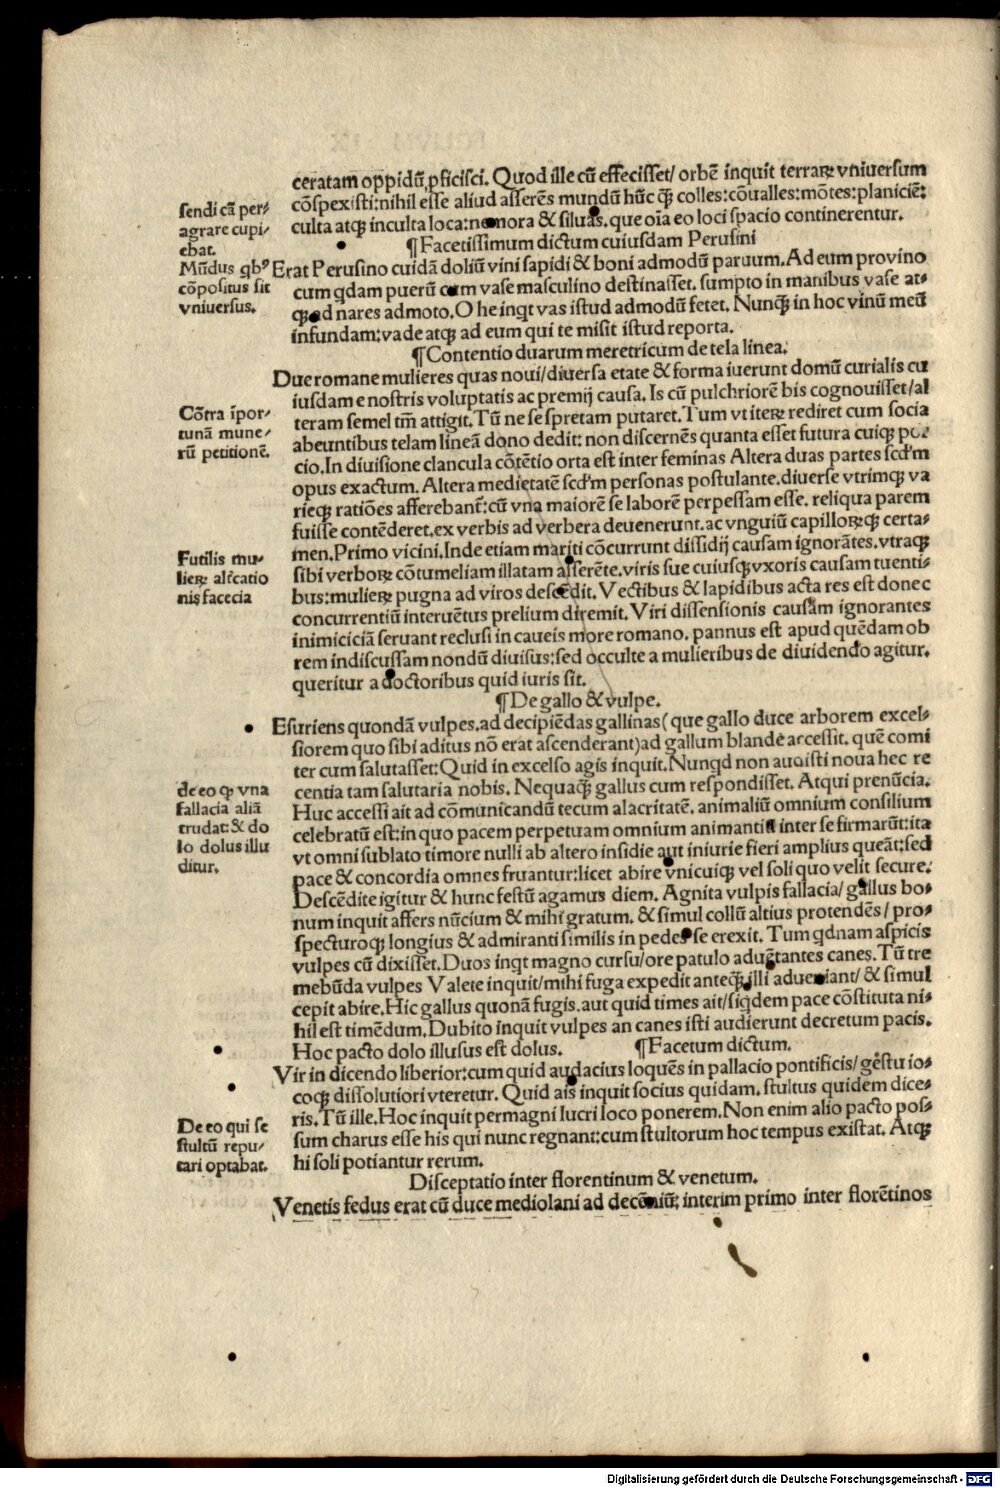 ceratam oppidū ꝓficisci. Quod ille cū effecisset/ orbē inquit terraꝝ vniuersum
cōspexisti: nihil esse aliud asserēs mundū hūc qꝫ̄ colles: cōualles: mōtes: planiciē:
culta atqꝫ inculta loca: nemora & siluas. que oīa eo loci spacio continerentur.
sendi cā per/
agrare cupi/
ebat.
¶Facetissimum dictum cuiusdam Perusini
Mūdus qbꝰ
cōpositus sit
vniuersus.
Erat Perusino cuidā doliū vini sapidi & boni admodū paruum. Ad eum provino
cum qdam puerū cum vase masculino destinasset. sumpto in manibus vase at-
qꝫ ad nares admoto. O he inqt vas istud admodū fetet. Nunqꝫ̄ in hoc vinū meū
infundam: vade atqꝫ ad eum qui te misit istud reporta.
¶Contentio duarum meretricum de tela linea.
Due romane mulieres quas noui/ diuersa etate & forma iuerunt domū curialis cu
iusdam e nostris voluptatis ac premij causa. Is cū pulchriorē bis cognouisset/ al
teram semel tm̄ attigit. Tū ne se spretam putaret. Tum vt iteꝝ rediret cum socia
abeuntibus telam lineā dono dedit: non discernēs quanta esset futura cuiqꝫ por
cio. In diuisione clancula cōtētio orta est inter feminas Altera duas partes scd'm
opus exactum. Altera medietatē scd'm personas postulante. diuerse vtrimqꝫ va
rieqꝫ ratiōes afferebant̄: cū vna maiorē se laborē perpessam esse. reliqua parem
fuisse contēderet. ex verbis ad verbera deuenerunt. ac vnguiū capilloꝝqꝫ certa-
men. Primo vicini. Inde etiam mariti cōcurrunt dissidij causam ignorātes. vtraqꝫ
sibi verboꝝ cōtumeliam illatam asserēte. viris sue cuiusqꝫ vxoris causam tuenti-
bus: mulieꝝ pugna ad viros descēdit. Vectibus & lapidibus acta res est donec
concurrentiū interuētus prelium diremit. Viri dissensionis causam ignorantes
inimiciciā seruant reclusi in caueis more romano. pannus est apud quēdam ob
rem indiscussam nondū diuisus: sed occulte a mulieribus de diuidendo agitur.
queritur a doctoribus quid iuris sit.
Cōtra īpor/
tunā mune/
rū petitionē.
Futilis mu-
lieꝝ alt̄catio
nis facecia
¶De gallo & vulpe.
Esuriens quondā vulpes. ad decipiēdas gallinas (que gallo duce arborem excel-
siorem quo sibi aditus nō erat ascenderant) ad gallum blande accessit. quē comi
ter cum salutasset: Quid in excelso agis inquit. Nunqd non audisti noua hec re
centia tam salutaria nobis. Nequaqꝫ̄ gallus cum respondisset. Atqui prenūcia.
Huc accessi ait ad cōmunicandū tecum alacritatē. animaliū omnium consilium
celebratū est: in quo pacem perpetuam omnium animantiū inter se firmarūt: ita
vt omni sublato timore nulli ab altero insidie aut iniurie fieri amplius queāt: sed
pace & concordia omnes fruantur: licet abire vnicuiqꝫ vel soli quo velit secure:
Descēdite igitur & hunc festū agamus diem. Agnita vulpis fallacia/ gallus bo-
num inquit affers nūcium & mihi gratum. & simul collū altius protendēs/ pro-
specturoqꝫ longius & admiranti similis in pedes se erexit. Tum qdnam aspicis
vulpes cū dixisset. Duos inqt magno cursu/ ore patulo aduētantes canes. Tū tre
mebūda vulpes Valete inquit/ mihi fuga expedit anteqꝫ̄ illi adueniant/ & simul
cepit abire. Hic gallus quonā fugis. aut quid times ait/ siqdem pace cōstituta ni-
hil est timēdum. Dubito inquit vulpes an canes isti audierunt decretum pacis.
Hoc pacto dolo illusus est dolus.
de eo ꝙ vna
fallacia aliā
trudat: & do
lo dolus illu
ditur.
¶Facetum dictum.
Vir in dicendo liberior: cum quid audacius loquēs in pallacio pontificis/ gestu io-
coqꝫ dissolutiori vteretur. Quid ais inquit socius quidam. stultus quidem dice-
ris. Tū ille. Hoc inquit permagni lucri loco ponerem. Non enim alio pacto pos-
sum charus esse his qui nunc regnant: cum stultorum hoc tempus existat. Atqꝫ
hi soli potiantur rerum.
De eo qui se
stultū repu/
tari optabat.
Disceptatio inter florentinum & venetum.
Venetis fedus erat cū duce mediolani ad decēniū: interim primo inter florētinos
Digitalisierung gefördert durch die Deutsche Forschungsgemeinschaft - DFG